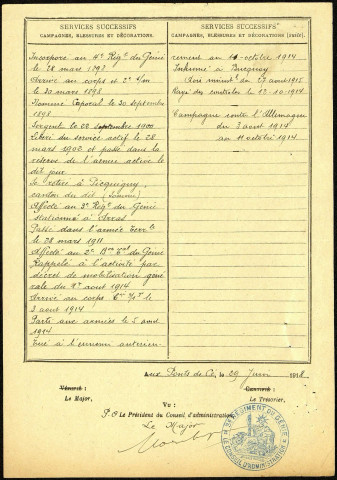 SERVICES SUCCESSIFS
CAMPAGNES, BLESSURES ET DÉCORATIONS.
Incorporé au 4e Régt du Génie
le 28 mars 1897
Arrivé au corps et 2e
le 30 mars 1898
Nommé Caporal le 20 septembre
1898
Sergent le 22 septembre 1900
Libéré du service actif le 28
mars 1902 et passé dans la
réserve de l'armée active le
dit jour
Se retire à Picquigny,
canton du dit (Somme)
Affecté au 3e Régt du Génie
stationné à Arras
Passé dans l'armée Terrle
le 28 mars 1911
Affecté au 2e Bon Tal du Génie
Rappelé à l'activité par
décret de mobilisation géné
rale du 1er aout 1914
Arrivé au corps
3 aout 1914
Parti aux armées le 5 aout
1914
Tué à l'ennemi antérieu-
SERVICES SUCCESSIFS
CAMPAGNES, BLESSURES ET DÉCORATIONS (suite).
rement au 11 octobre 1914
Inhumé à Bucquoy
du 17 aout 1915
Rayé des contrôles le 12-10-1914
Campagne contre l'Allemagne
du 3 aout 1914
au 11 octobre 1914
Aux Ponts de Cé, le 29 Juin 1918
Vérifié :
Le Major,
Le Trésorier,
Vu :
P.O Le Président du Conseil d'administration,
Le Major
3e RÉGIMENT DU GÉNIE
LE CONSEIL D'ADMINISTRATION